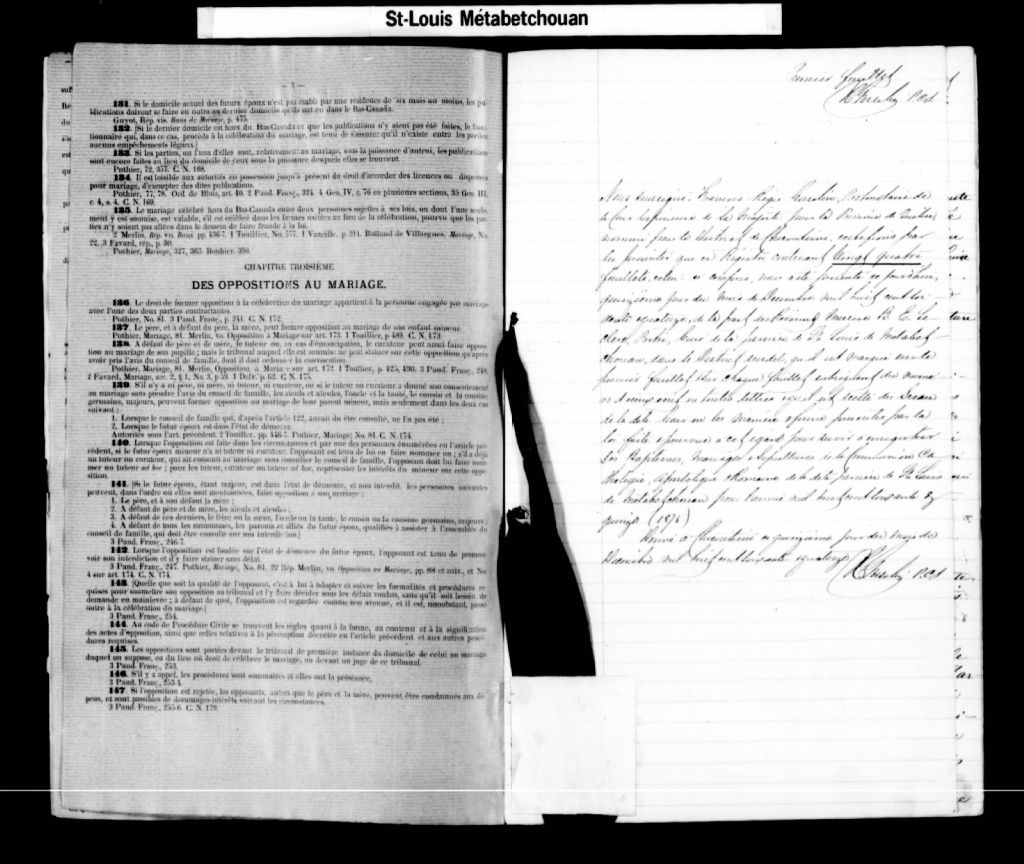 St-Louis Métabetchouan
131. Si le domicile actuel des futurs époux n'est pas établi par une résidence de six mois au moins, les pu-
blications doivent se faire en outre au dernier domicile qu'ils ont eu dans le Bas-Canada.
Guyot, Rép. vis. Bans de Mariage, p. 475.
132. [Si le dernier domicile est hors du Bas-Canada et que les publications n'y aient pas été faites, le fonc-
tionnaire qui, dans ce cas, procède à la célébration du mariage, est tenu de s'assurer qu'il n'existe entre les parties
aucuns empêchements légaux.]
133. Si les parties, ou l'une d'elles sont, relativement au mariage, sous la puissance d'autrui, les publications
sont encore faites au lieu du domicile de ceux sous la puissance desquels elles se trouvent.
Pothier, 72, 357. C. N. 168.
134. Il est loisible aux autorités en possession jusqu'à présent du droit d'accorder des licences ou dispenses
pour mariage, d'exempter des dites publications.
Pothier, 77, 78. Ord. de Blois, art. 40. 2 Pand. Franç., 324. 4 Geo. IV, c. 76 en plusieurs sections, 35 Geo. III,
c. 4, s. 4. C. N. 169.
135. Le mariage célébré hors du Bas-Canada entre deux personnes sujettes à ses lois, ou dont l'une seule-
ment y est soumise, est valable, s'il est célébré dans les formes usitées au lieu de la célébration, pourvu que les par-
ties n'y soient pas allées dans le dessein de faire fraude à la loi.
2 Merlin, Rép. vo. Bans. pp. 436-7. 1 Toullier, No. 577. 1 Vazeille. p. 211. Rolland de Villargues, Mariage, No.
22, 3 Favard, rép., p. 30.
Pothier, Mariage, 327, 363. Bouhier. 390.
CHAPITRE TROISIÈME
DES OPPOSITIONS AU MARIAGE.
136. Le droit de former opposition à la célébration du mariage appartient à la personne engagée par mariage
avec l'une des deux parties contractantes.
Pothier, No. 81. 3 Pand. Franç., p. 241. C. N. 172.
137. Le père, et à défaut du père, la mère, peut former opposition au mariage de son enfant mineur.
Pothier, Mariage, 81. Merlin, vo. Opposition à Mariage sur art. 173. 1 Toullier, p 489. C. N. 173.
138. A défaut de père et de mère, le tuteur ou, au cas d'émancipation, le curateur peut aussi faire opposi-
tion au mariage de son pupille; mais le tribunal auquel elle est soumise ne peut statuer sur cette opposition qu'après
avoir pris l'avis du conseil de famille, dont il doit ordonner la convocation.
Pothier, Mariage, 81. Merlin, vo. Opposition à Mariage sur art. 172. 1 Toullier, p. 425, 496. 3 Pand. Franç., 248.
2 Favard, Mariage, sec. 2, § 1, No. 3, p 59. 1 Delv. p. 62. C. N. 175.
139. S'il n'y a ni père, ni mère, ni tuteur, ni curateur, ou si le tuteur ou curateur a donné son consentement
au mariage sans prendre l'avis du conseil de famille, les aïeuls et aïeules, l'oncle et la tante, le cousin et la cousine
germains, majeurs, peuvent former opposition au mariage de leur parent mineur, mais seulement dans les deux cas
suivant :
1. Lorsque le conseil de famille qui, d'après l'article 122, aurait du être consulté, ne l'a pas été ;
2. Lorsque le futur époux est dans l'état de démence.
Autorités sous l'art. précédent. 2 Touiller, pp. 446-7. Pothier, Mariage; No. 81. C. N. 174.
140. Lorsque l'opposition est faite dans les circonstances et par une des personnes énumérées en l'article pré-
cédent, si le futur époux mineur n'a ni tuteur ni curateur, l'opposant est tenu de lui en faire nommer un ; s'il a déjà
un tuteur ou curateur, qui ait consenti au mariage sans consulter le conseil de famille, l'opposant doit lui faire nom-
mer un tuteur ad hoc ; pour les tuteur, curateur ou tuteur ad hoc, représenter les intérêts du mineur sur cette oppo-
sition.
141. [Si le futur époux, étant majeur, est dans l'état de démence, et non interdit, les personnes suivantes
peuvent, dans l'ordre où elles sont mentionnées, faire opposition à son mariage :
1. Le père, et à son défaut la mère ;
2. A défaut de père et de mère, les aïeuls et aïeules ;
3. A défaut de ces derniers, le frère ou la sœur, l'oncle ou la tante, le cousin ou la cousine germains, majeurs ;
4. A défaut de tous les susnommés, les parents et alliés du futur époux, qualifiés à assister à l'assemblée du
conseil de famille, qui doit être consulté sur son interdiction.]
3 Pand. Franç., 246-7.
142. Lorsque l'opposition est fondée sur l'état de démence du futur époux, l'opposant est tenu de promou-
voir son interdiction et d'y faire statuer sans délai.
3 Pand. Franç., 247. Pothier, Mariage, No. 81. 22 Rép. Merlin, vo. Opposition au Mariage, pp. 88 et suiv., et No.
4 sur art. 174. C. N. 174.
143. [Quelle que soit la qualité de l'opposant, c'est à lui à adopter et suivre les formalités et procédures re-
quises pour soumettre son opposition au tribunal et l'y faire décider sous les délais voulus, sans qu'il soit besoin de
demande en mainlevée ; à défaut de quoi, l'opposition est regardée comme non avenue, et il est, nonobstant, passé
outre à la célébration du mariage.]
3 Pand. Franç., 254.
144. Au code de Procédure Civile se trouvent les règles quant à la forme, au contenu et à la signification
des actes d'opposition, ainsi que celles relatives à la péremption décrétée en l'article précédent et aux autres procé-
dures requises.
145. Les oppositions sont portées devant le tribunal de première instance du domicile de celui au mariage
duquel on suppose, ou du lieu où droit de célébrer le mariage, ou devant un juge de ce tribunal.
3 Pand. Franç., 253.
146. S'il y a appel, les procédures sont sommaires et elles ont la préséance.
3 Pand. Franç., 253-4.
147. Si l'opposition est rejetée, les opposants, autres que le père et la mère, peuvent être condamnés aux dé-
pens, et sont passibles de dommages-intérêts suivant les circonstances.
3 Pand. Franç., 255-6. C. N. 179.
Premier feuillet
P.C.S.
Nous soussigné François Régis Gosselin, Protonotaire de
la Cour Supérieure de la Province de Québec
nommé pour le district de Chicoutimi, certifions par
les présentes que ce Registre contenant vingt quatre
feuillets, celui-ci compris, nous a été présenté ce jourd'hui,
quinzième jour du mois de Décembre mil huit cent soi-
xante quatorze, de la part du Révérend Messire B. E. Le
clerc, Prêtre, Curé de la paroisse de St Louis de Métabet-
chouan, dans le district susdit, qu'il est marqué sur le
premier feuillet et sur chaque feuillet subséquent du numé-
ro écrit en toutes lettres et qu'il est scellé du Sceau
de la dite Cour en la manière requise par la
loi à cet égard pour servir à enregistrer
les Baptêmes, mariages et sépultures de la Communion Ca-
tholique, Apostolique et Romaine de la dite paroisse de St Louis
de Métabetchouan pour l'année mil huit cent soixante et
quinze (1875)
Donné à Chicoutimi ce quinzième jour du mois de
Décembre mil huit cent soixante quatorze
P.C.S.